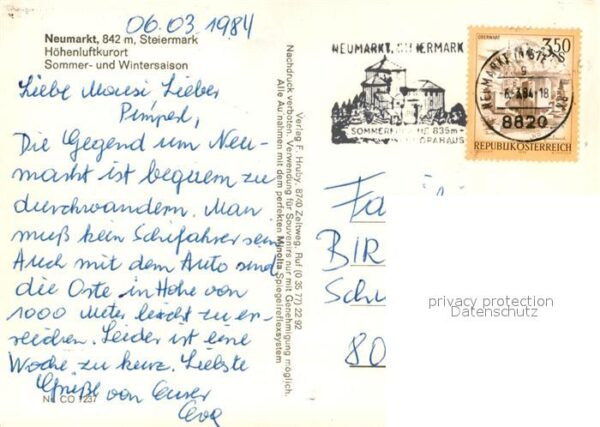 06.03.1984
Neumarkt, 842 m, Steiermark
Höhenluftkurort
Sommer- und Wintersaison
Liebe Mausi Lieber
Pimperl,
Die Gegend um Neu-
markt ist bequem zu
durchwandern. Man
muß kein Schifahrer sein
Auch mit dem Auto sind
die Orte in Höhe von
1000 Meter leicht zu er-
reichen. Leider ist eine
Woche zu kurz. Liebste
Grüße von Eurer
Eva
Nr. CO 1237
Verlag F. Hruby, 8740 Zeltweg, Ruf (0 35 77) 22 92
Nachdruck verboten. Verwendung für Souvenirs nur mit Genehmigung möglich.
Alle Aufnahmen mit dem perfekten Minolta Spiegelreflexsystem
NEUMARKT, STEIERMARK
SOMMERFRISCHE 835m
OBERWART
350
S
NEUMARKT IN STEIERMARK
-6.3.84-18
8820
REPUBLIK ÖSTERREICH
Fa
BIR
Sch
80
privacy protection
Datenschutz